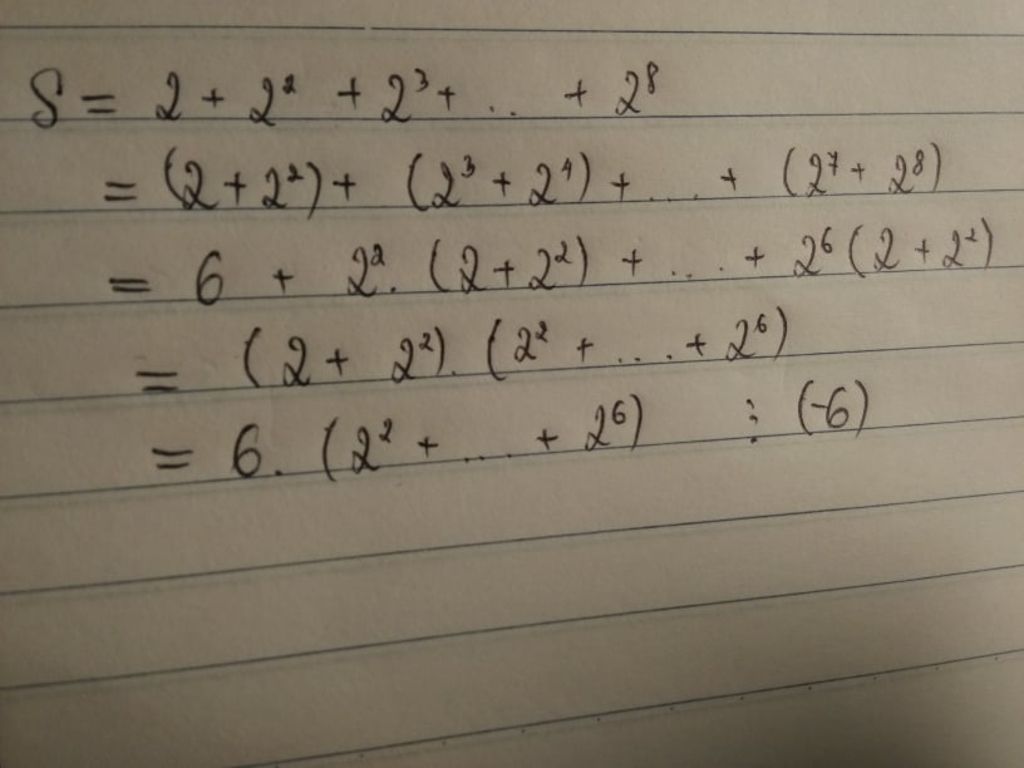 S = 2 + 2² + 2³ + ... + 2⁸
= (2 + 2²) + (2³ + 2⁴) + .... + (2⁷ + 2⁸)
= 6 + 2². (2 + 2²) + .... + 2⁶ (2 + 2²)
= (2 + 2²). (2² + .... + 2⁶)
= 6. (2² + .... + 2⁶) ⋮ (-6)